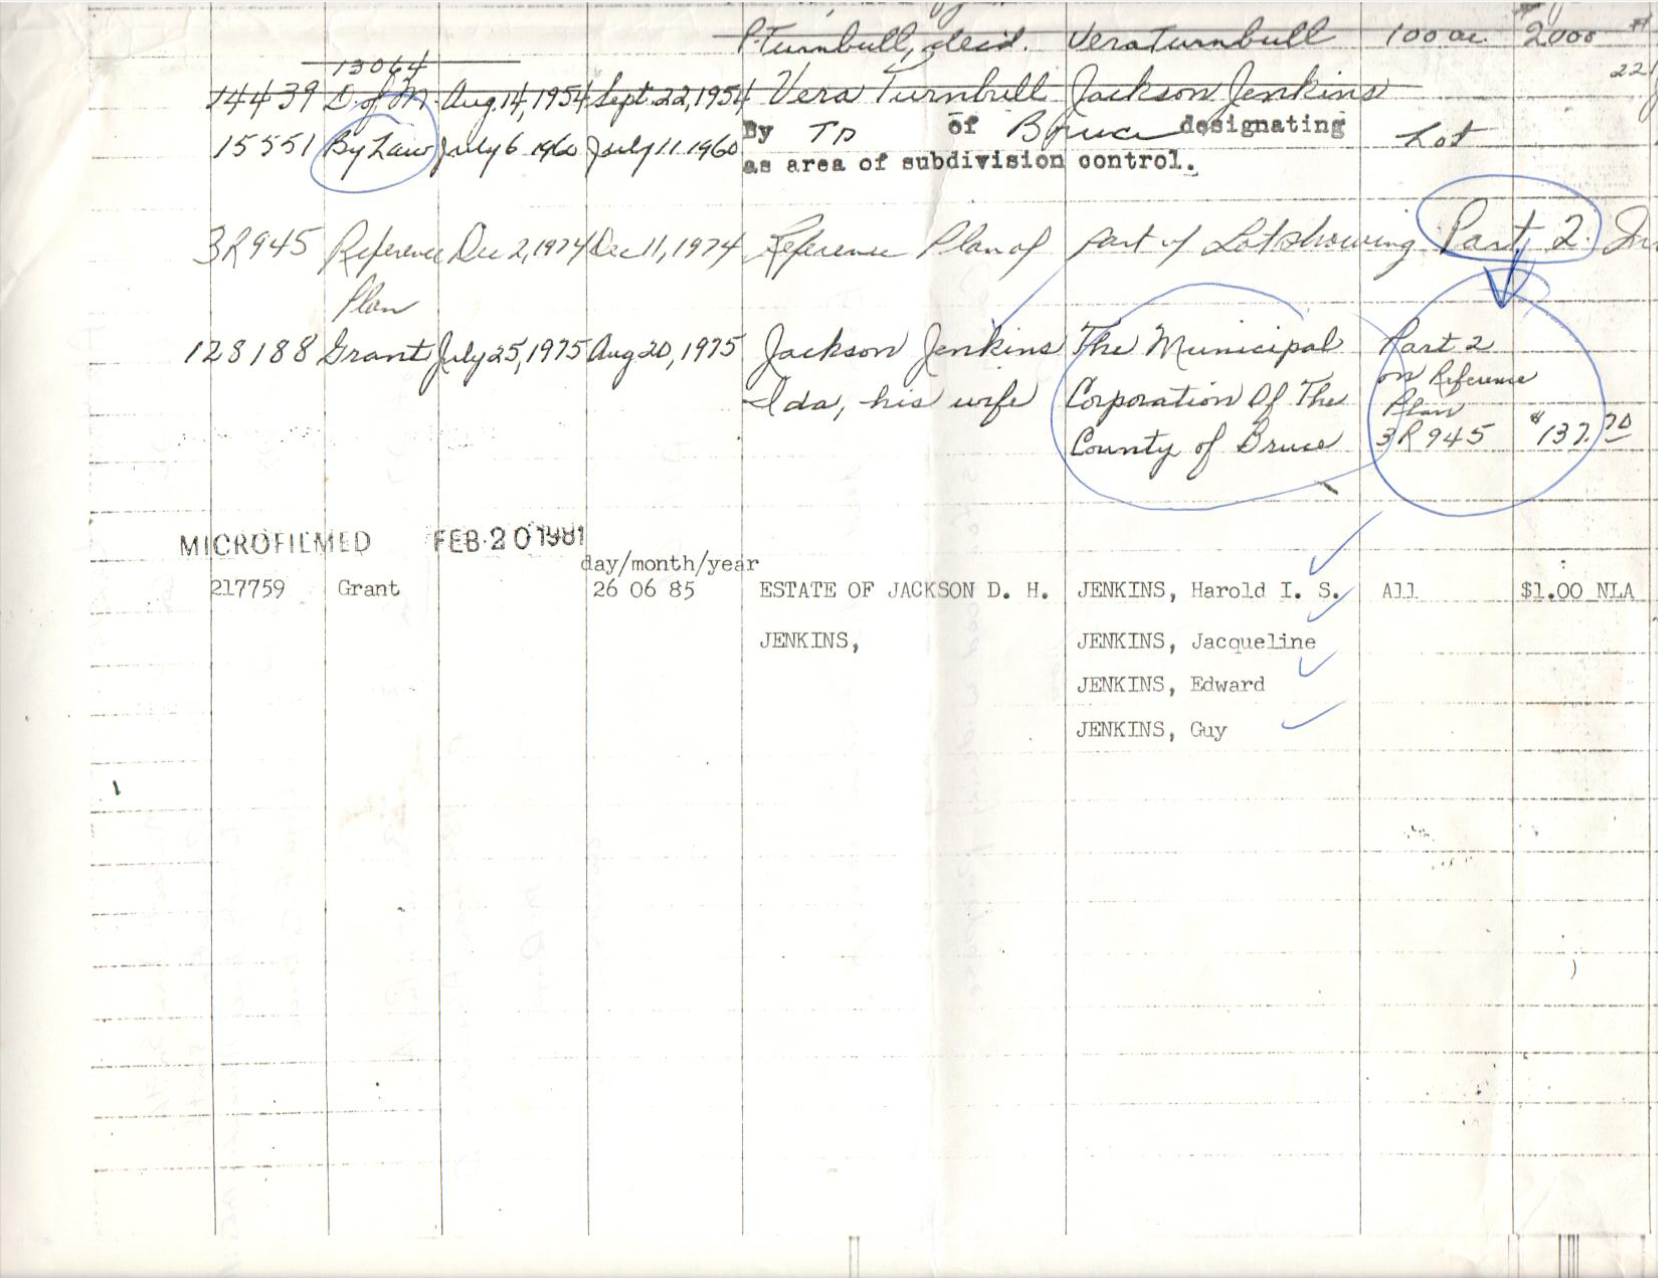 P. Turnbull, decd. Vera Turnbull 100 ac. $2000
13064
14439 D. of M. Aug. 14, 1954 Sept. 22, 1954 Vera Turnbull Jackson Jenkins
15551 By Law July 6 1960 July 11 1960 By Tp of Bruce designating Lot
as area of subdivision control.
3R945 Reference Dec 2, 1974 Dec 11, 1974 Reference Plan of part of Lot showing Part 2.
Plan
128188 Grant July 25, 1975 Aug 20, 1975 Jackson Jenkins The Municipal Part 2
on Reference
Ida, his wife Corporation Of The Plan
County of Bruce 3R945 $137.70
MICROFILMED FEB 20 1981
day/month/year
217759 Grant 26 06 85 ESTATE OF JACKSON D. H. JENKINS, Harold I. S. All $1.00 NLA
JENKINS, JENKINS, Jacqueline
JENKINS, Edward
JENKINS, Guy